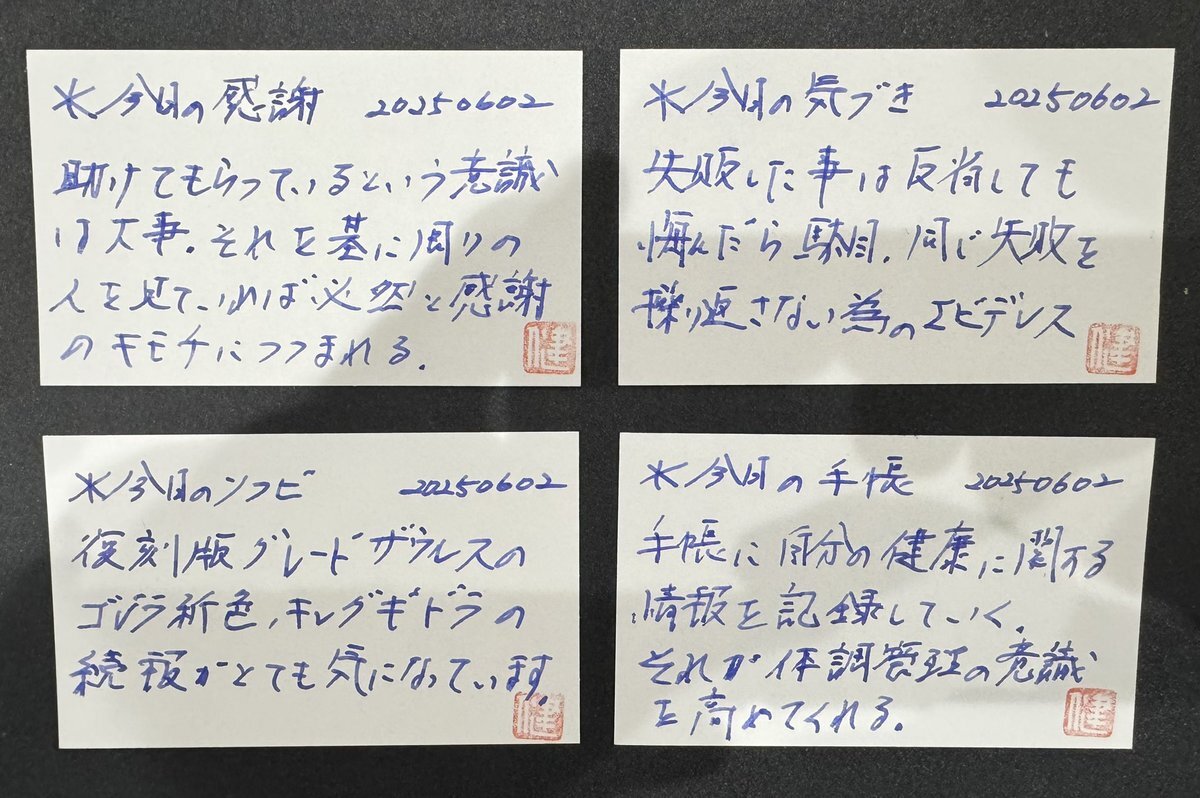 ※今日の感謝 20250602
助けてもらっているという意識
は大事。それを基に周りの
人を見ていれば必然と感謝
のキモチにつつまれる。
健
※今日の気づき 20250602
失敗した事は反省しても
悔んだら駄目。同じ失敗を
繰り返さない為のエビデンス
健
※今日のソフビ 20250602
復刻版グレードザウルスの
ゴジラ新色、キングギドラの
続報がとても気になっています。
健
※今日の手帳 20250602
手帳に自分の健康に関する
情報を記録していく。
それが体調管理の意識
を高めてくれる。
健